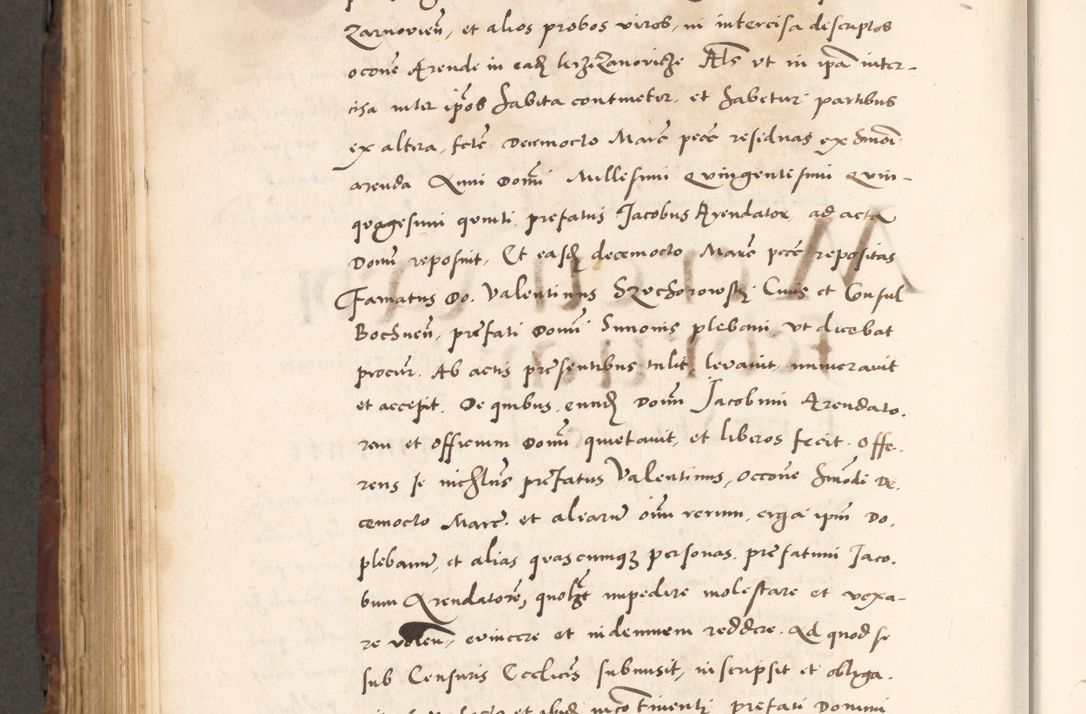 Zarnovien, et alios probos viros, in intercisa descriptos
ocone Arende in ead Als ut in ipa inter-
cisa inter ipos habita continetur, et habetur partibus
ex altera, fere Decemocto Marc pecc residuas ex hmoi
arenda Anni Domi Millesimi Quingentesimi Quin-
quagesimi quinti, prefatus Jacobus Arendator, ad acta
Domi reposuit, Et easd decemocto Marc pecc repositas
Famatus Do. Valentinus Civis et Consul
Bochnen, prefati Domi Simonis plebani, ut dicebat
procur. Ab actis presentibus tulit, levavit, numeravit
et accepit, De quibus, eundem Domi Jacobum Arendato.
rem et officium Domi quietavit, et liberos fecit. Offe.
rens se nichilus prefatus Valentinus, occone hmodi De.
cemocto Marc. et aliaru oim rerum, erga ipm Do.
plebanu, et alias quascumq personas, prefatum Jaco.
bum Arendatore, quolzt impedire molestare et vexa-
re volen, evincere et indemnem reddere. Ad quod se
sub Censuris Ecclicis submisit, inscripsit et obliga.
prefati Domini